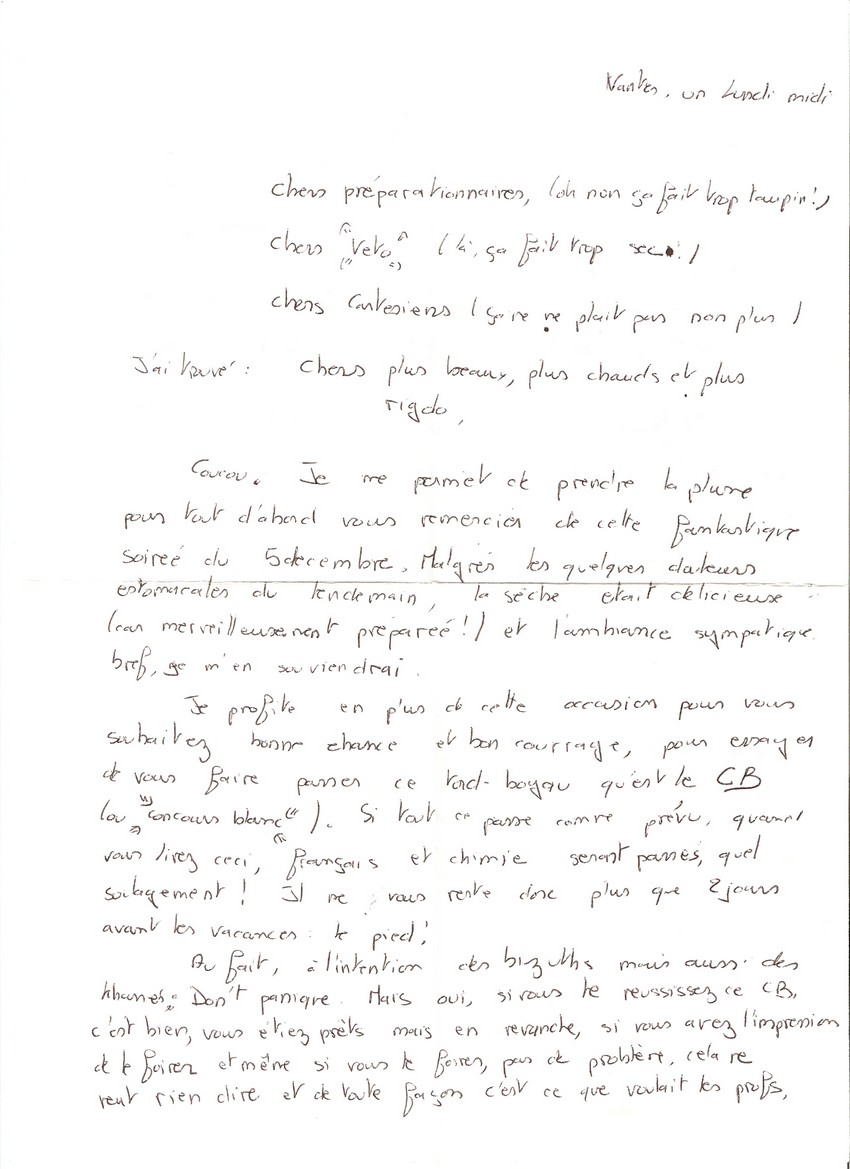 Nantes, un Lundi midi
Chers préparationnaires, (oh non ça fait trop taupin!)
chers "Veto" (là, ça fait trop sec!)
chers Cartésiens (ça ne me plait pas non plus)
J'ai trouvé : Chers plus beaux, plus chauds et plus
rigolo,
Coucou. Je me permet de prendre la plume
pour tout d'abord vous remercier de cette fantastique
soireé du 5 decembre. Malgrés les quelques douleurs
estomacales du lendemain, la sèche était délicieuse
(car merveilleusement prépareé!) et l'ambiance sympatique.
bref, je m'en souviendrai.
Je profite en plus de cette occasion pour vous
souhaitez bonne chance et bon courrage, pour essayer
de vous faire passer ce tord-boyau qu'est le CB
(ou "concours blanc"). Si tout ce passe comme prévu, quand
vous lirez ceci, français et chimie seront passés, quel
soulagement ! Il ne vous reste donc plus que 2 jours
avant les vacances : le pied !
Au fait, à l'intention des bizuths mais aussi des
kharrés : Don't panique. Mais oui, si vous le reussissez ce CB,
c'est bien, vous étiez prêts mais en revanche, si vous avez l'impression
de le foirer et même si vous le foirez, pas de problème, cela ne
veut rien dire et de toute façon c'est ce que voulait les profs,